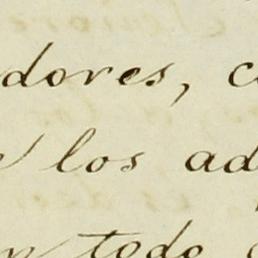 dores, c
los ad
n todo